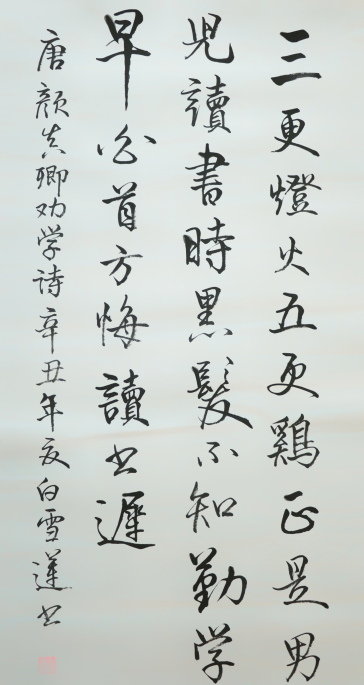 三更燈火五更鷄正是男
児讀書時黒髮不知勤学
早白首方悔讀书遲
唐顔真卿劝学詩辛丑年夏白雪蓮书